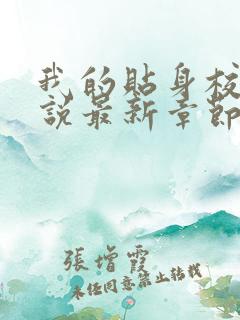 我的贴身校
说最新章节
張增霞
未经同意禁止转载